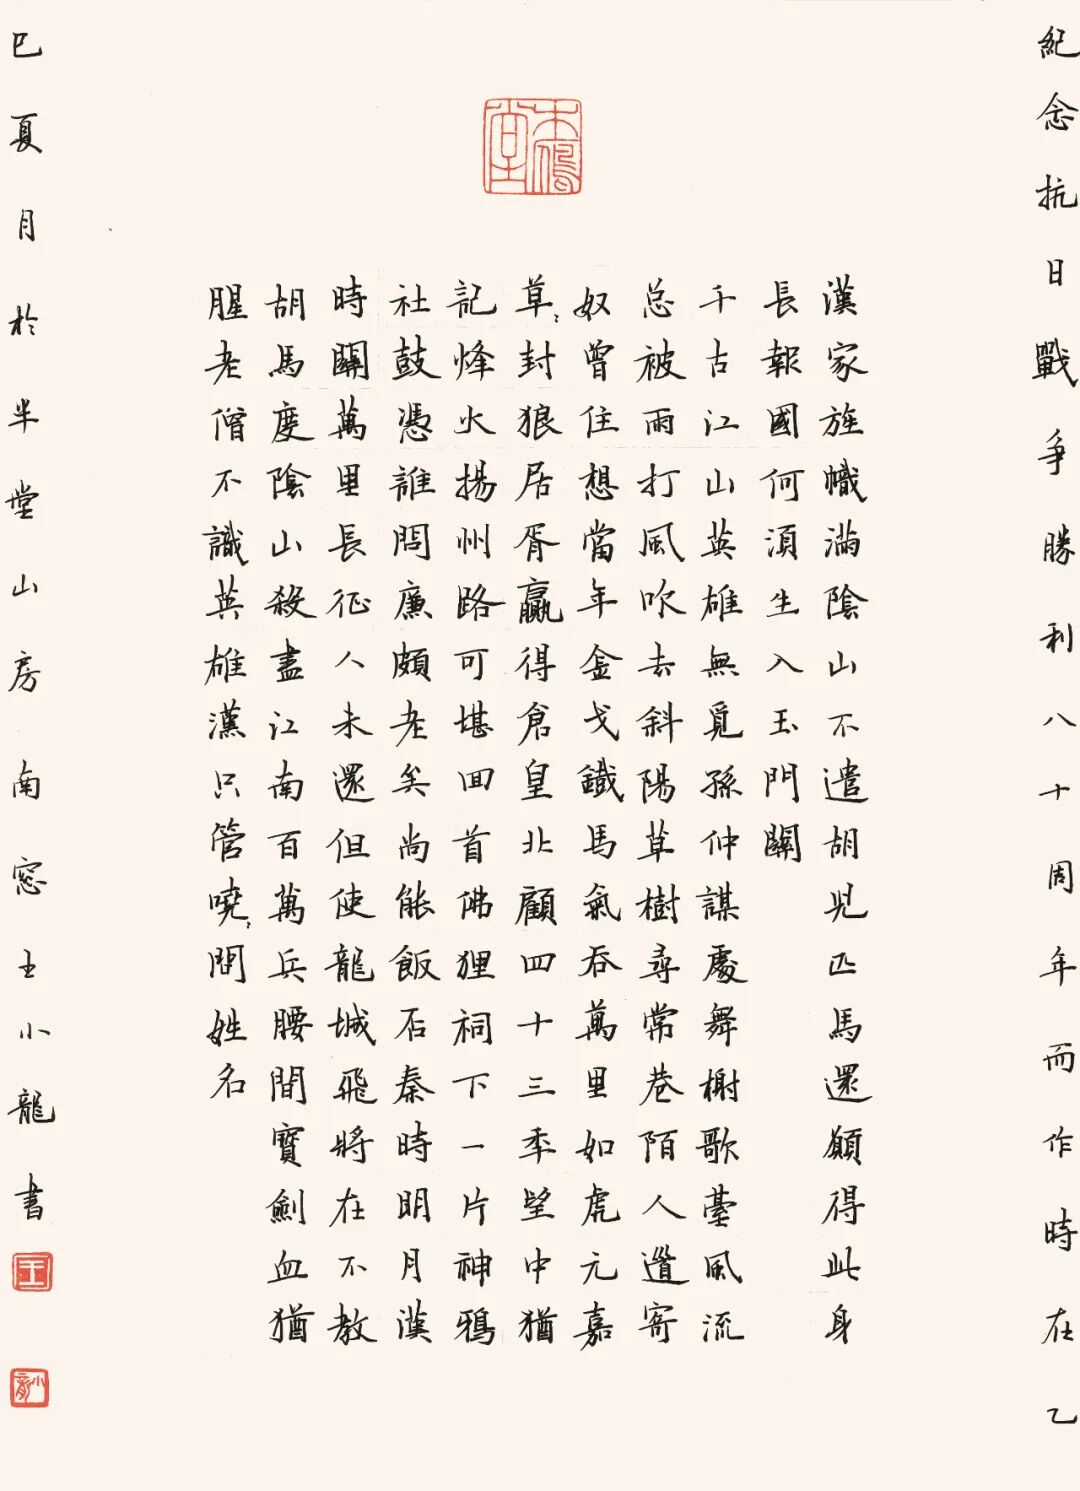 紀念抗日戰争勝利八十周年而作時在乙
漢家旌幟滿陰山不遣胡兒匹馬還願得此身
長報國何須生入玉門關
千古江山英雄無覓孫仲謀處舞榭歌臺風流
总被雨打風吹去斜陽草樹尋常巷陌人道寄
奴曾住想當年金戈鐵馬氣吞萬里如虎元嘉
草〻封狼居胥贏得倉皇北顧四十三秊望中猶
記烽火揚州路可堪囬首佛狸祠下一片神鴉
社鼓憑誰問廉頗老矣尚能飯否秦時明月漢
時關萬里長征人未還但使龍城飛將在不教
胡馬度陰山殺盡江南百萬兵腰間寶劍血猶
腥老僧不識英雄漢只管嘵〻問姓名
巳夏月於半堂山房南窓王小龍書
王
小龍